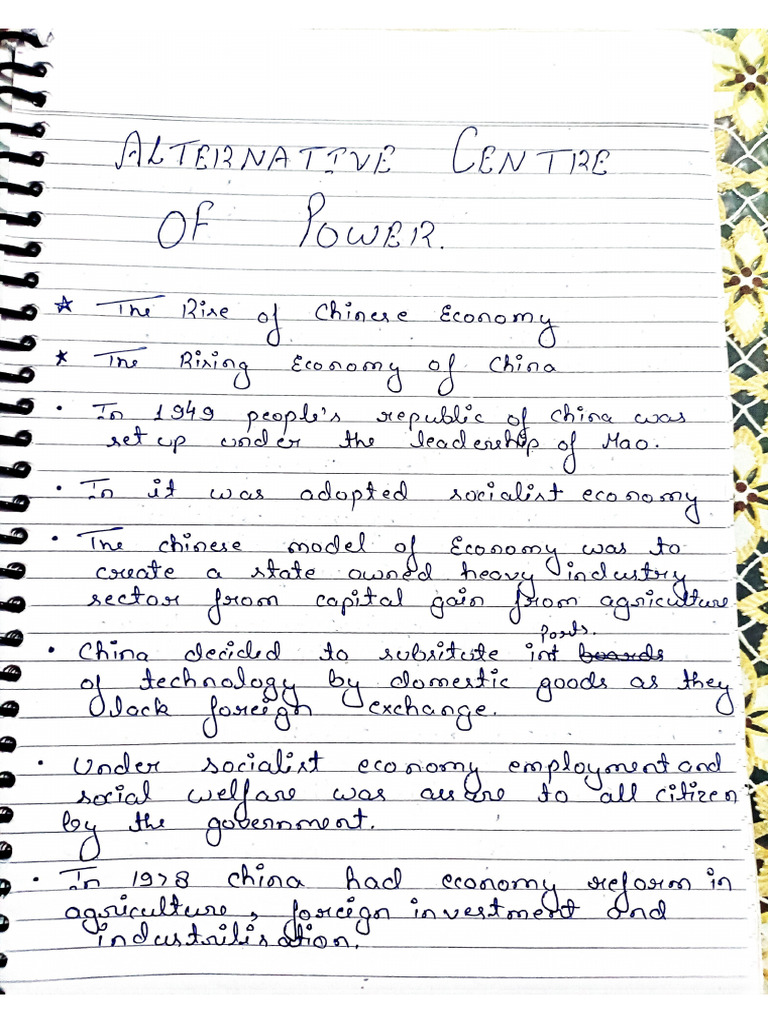 ALTERNATIVE CENTRE
OF POWER.
☆ The Rise of Chinese Economy
* The Rising Economy of China
• In 1949 people's republic of China was
set up under the leadership of Mao.
• In it was adopted socialist economy
• The chinese model of Economy was to
create a state owned heavy industry
sector from capital gain from agriculture
ports.
• China decided to subsitute int boards
of technology by domestic goods as they
lack foreign exchange.
• Under socialist economy employment and
social welfare was to all citizen
by the government.
• In 1978 china had economy reform in
agriculture, foreign investment and
industrilisation.